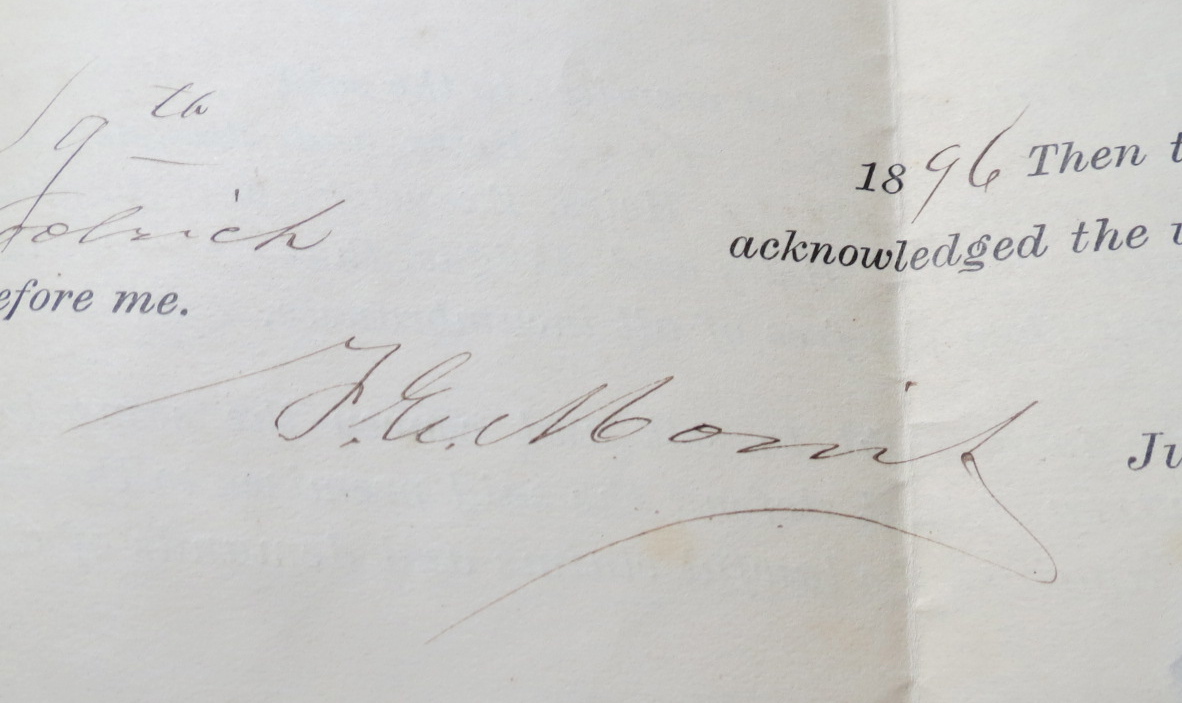 19th
1896 Then t
odrich
acknowledged the u
efore me.
F. E. Morris
Ju